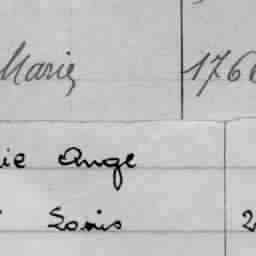 Marie 176
ie Ange
Louis 2